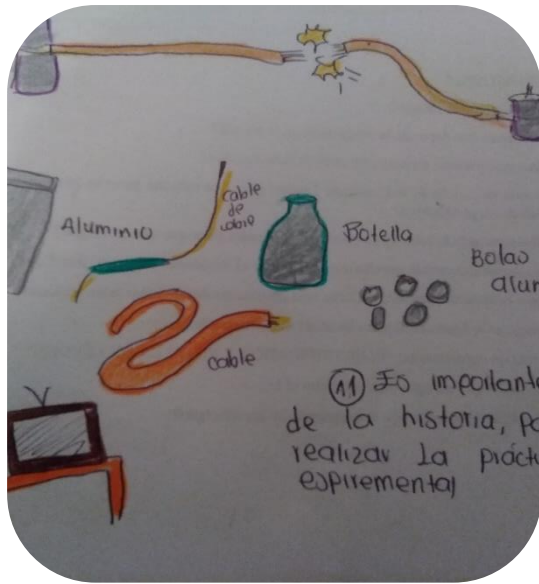 Aluminio
cable
de
cobre
Botella
Bolas
alum
cable
11 Es importante
de la historia, pa
realizar la práct
espiremental